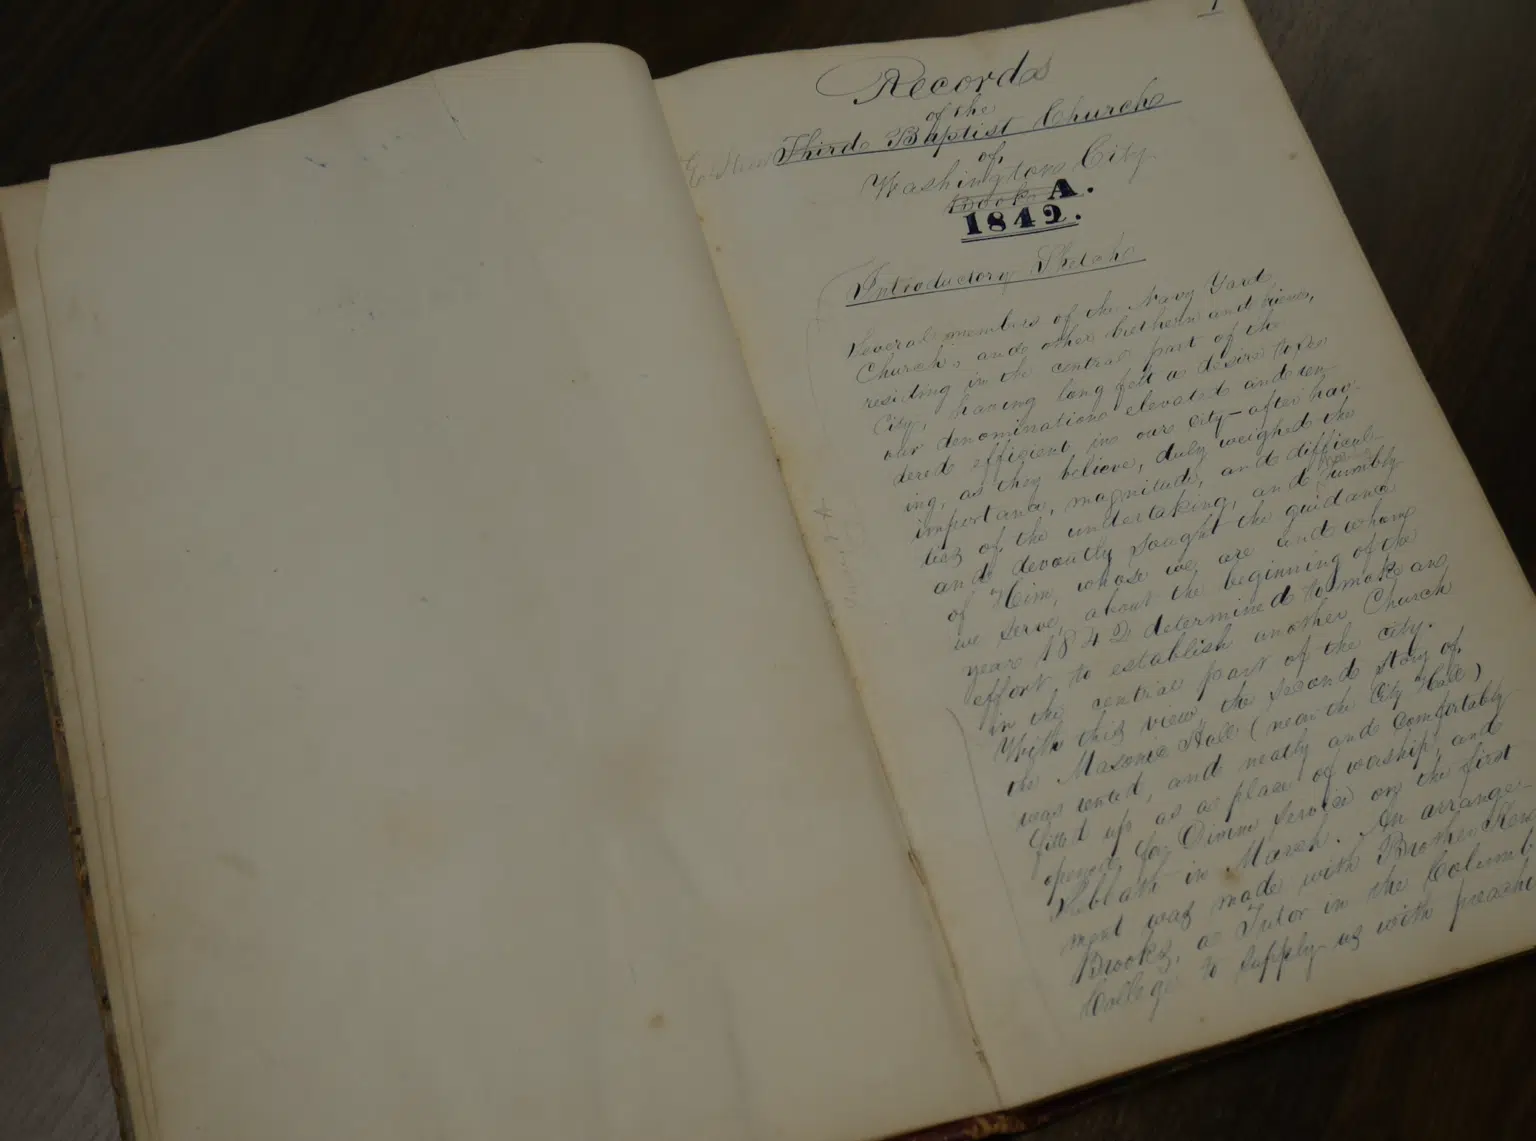 1
Records
of the
Third Baptist Church
of
Washington City.
Book A.
1842.
Introductory Sketch
Several members of the Navy Yard
Church, and other brethern and friends,
residing in the central part of the
City, having long felt a desire to see
our denomination elevated and ren-
dered efficient in our city—after hav-
ing, as they believe, duly weighed the
importance, magnitude, and difficul-
ties of the undertaking, and humbly
and devoutly sought the guidance
of Him, whose we are and whom
we serve, about the beginning of the
year 1842 determined to make an
effort to establish another Church
in the central part of the city.
With this view, the second story of
the Masonic Hall (near the City Hall)
was rented, and neatly and comfortably
fitted up as a place of worship, and
opened for Divine service on the first
Sabbath in March. An arrange-
ment was made with Brother
Brooks, a Tutor in the Columb
College to supply us with preachi